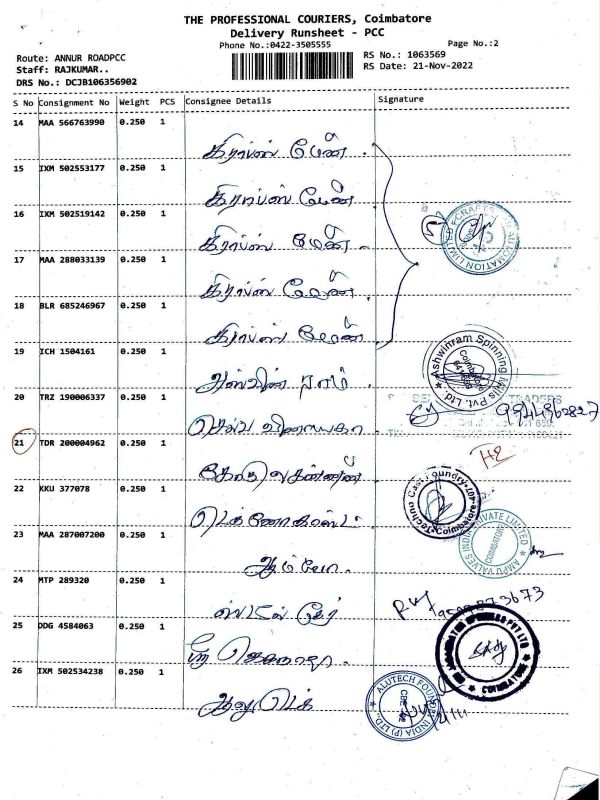 THE PROFESSIONAL COURIERS, Coimbatore
Delivery Runsheet - PCC
Phone No.:0422-3505555
Page No.:2
Route: ANNUR ROADPCC
RS No.: 1063569
Staff: RAJKUMAR..
RS Date: 21-Nov-2022
DRS No.: DCJB106356902
S No Consignment No Weight PCS Consignee Details Signature
14 MAA 566763990 0.250 1
கிராப்ஸ் மேன்
15 IXM 502553177 0.250 1
கிராப்ஸ் மேன்
16 IXM 502519142 0.250 1
கிராப்ஸ் மேன்
17 MAA 288033139 0.250 1
கிராப்ஸ் மேன்
18 BLR 685246967 0.250 1
கிராப்ஸ் மேன்
19 ICH 1504161 0.250 1
Ashwinram Spinning Mills Pvt. Ltd.
Coimbatore
அஸ்வின் ராம்
20 TRZ 190006337 0.250 1
9944862827
செல்வ விநாயகா
21 TDR 200004962 0.250 1
22 KKU 377078 0.250 1
Techno Cast Foundry
Coimbatore
டெக்னோகாஸ்ட்
23 MAA 287007200 0.250 1
AMPO VALVES INDIA PRIVATE LIMITED
COIMBATORE
ஆம்போ
24 MTP 289320 0.250 1
25 DDG 4584063 0.250 1
COIMBATORE
26 IXM 502534238 0.250 1
ALUTECH FOUNDRY INDIA (P) LTD.
CBE
அலுடெக்